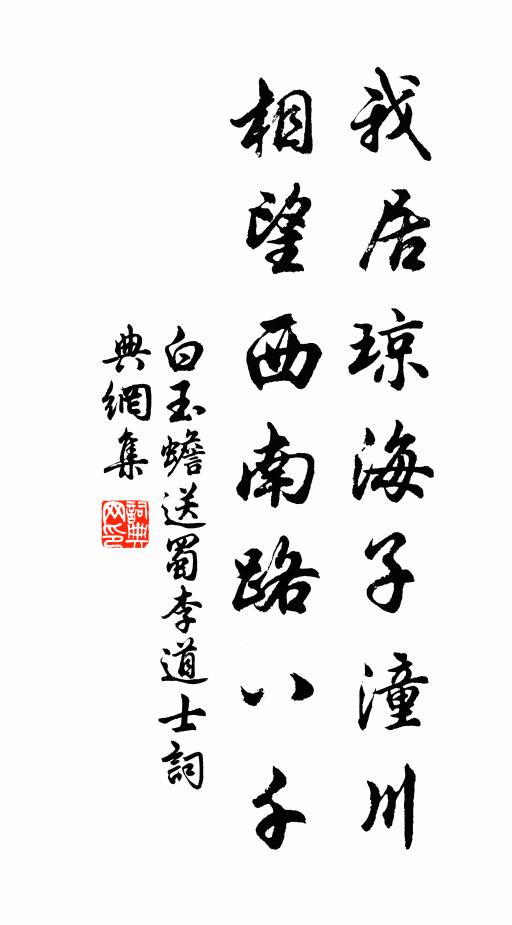 我居琼海子潼川
相望西南路八千
白玉蟾送蜀李道士詞
典網集
詞典
网印